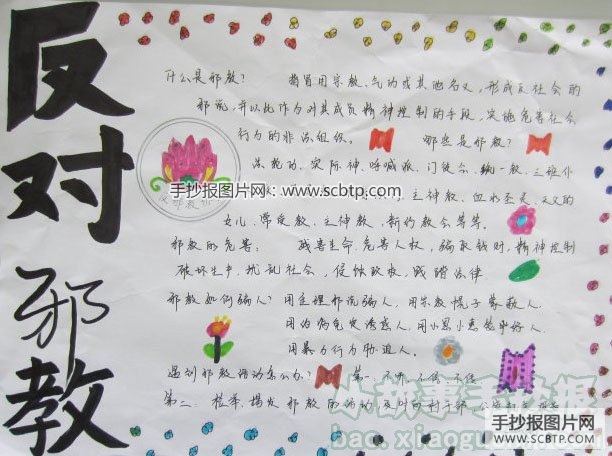 反对
邪教
什么是邪教? 指冒用宗教、气功或其他名义,形成反社会的
邪说,并以此作为对其成员精神控制的手段,实施危害社会
行为的非法组织。 哪些是邪教?
法轮功、实际神、呼喊派、门徒会、统一教、三班仆
手抄报图片网: www.scbtp.com
主神教、血水圣灵、天父的
女儿、常受教、主神教、新约教会等等。
邪教的危害: 残害生命、危害人权,骗取钱财,精神控制
破坏生产,扰乱社会,侵蚀政权,践踏法律
邪教如何骗人? 用歪理邪说骗人,用宗教幌子蒙蔽人
用治病免灾诱惑人,用小恩小惠
用暴力行为胁迫人。
遇到邪教活动怎么办? 第一、不听、不信、不传
第二、检举、揭发邪教的
手抄报图片网
WWW.SCBTP.COM